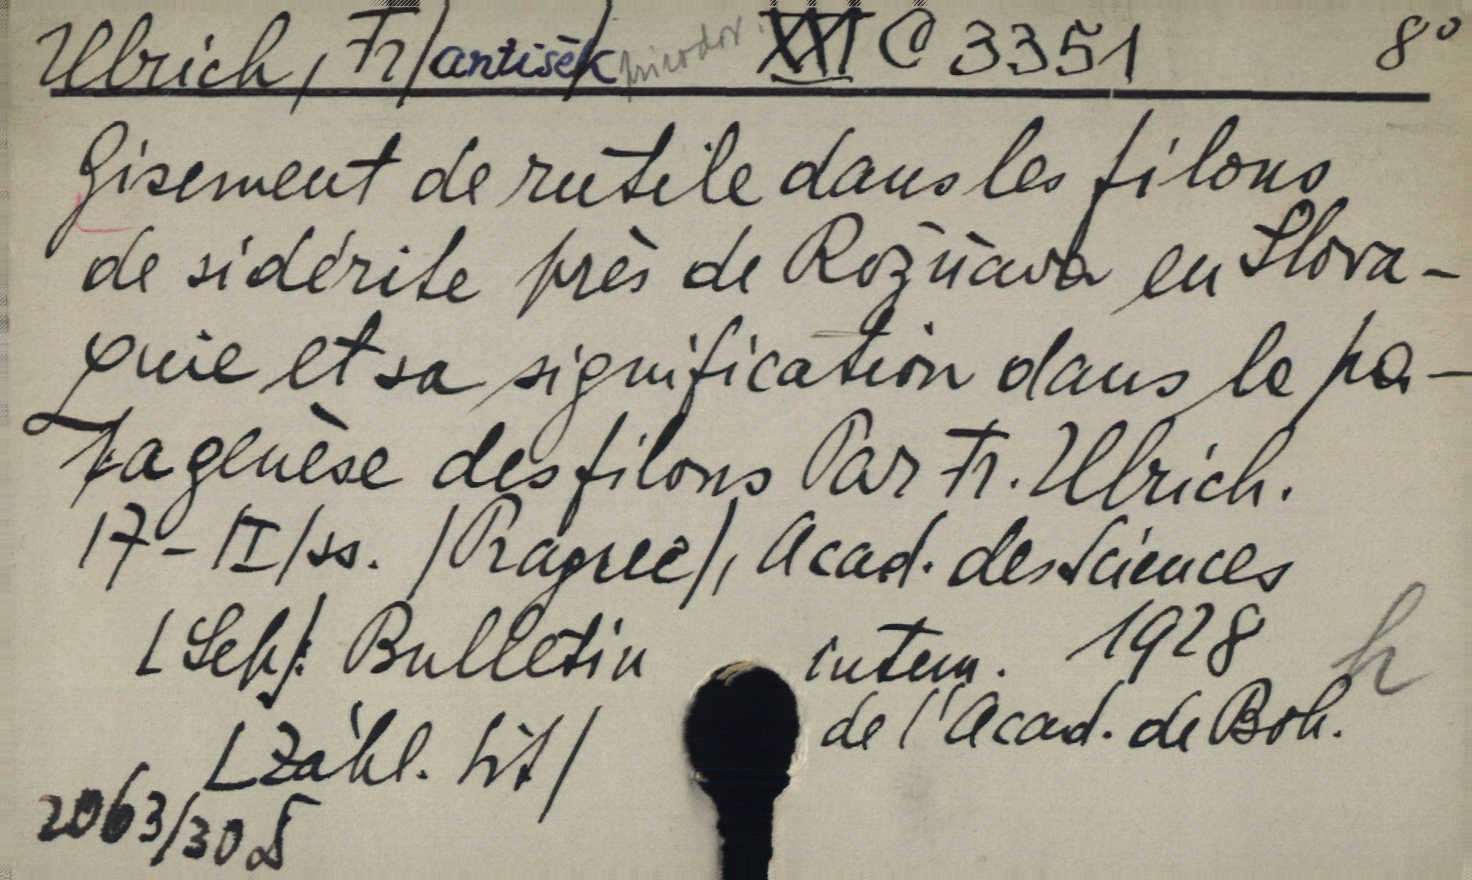 Ulrich, Fr/antišek/ přírodov. XXI C 3351 8°
Gisement de rutile dans les filons
de sidérite près de Rožňava en Slova-
quie et sa signification dans la pa-
ragenèse des filons Par Fr. Ulrich.
/Prague/, Acad. des Sciences
Bulletin intern. 1928
[Záhl. tit/ de l'Acad. de Boh.
h
2063/30